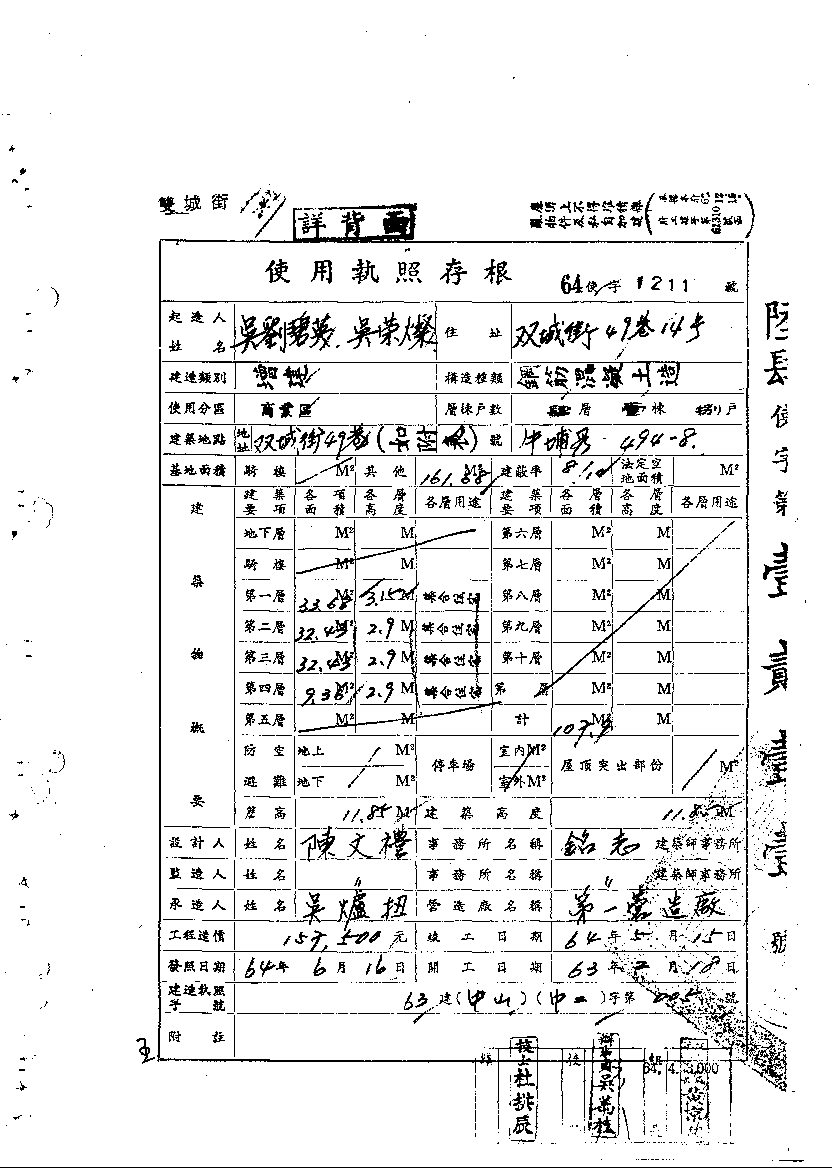 雙城街
詳背面
使用執照存根
64使字1211號
起造人姓名 吳劉碧英、吳榮燦 住址 双城街49巷14号
建造類別 增建 構造種類 鋼筋混凝土造
使用分區 商業區 層棟戶數 層 棟 戶
建築地點 地址 双城街49巷 號 牛埔 494-8
基地面積 騎樓 M² 其他 161.88 M² 建蔽率 8/10 法定空地面積 M²
建築物概要
建築要項 各項面積 各層高度 各層用途 建築要項 各層面積 各層高度 各層用途
地下層 M² M 第六層 M² M
騎樓 M² M 第七層 M² M
第一層 33.68 M² 3.15 M 集合住宅 第八層 M² M
第二層 32.43 M² 2.9 M 集合住宅 第九層 M² M
第三層 32.43 M² 2.9 M 集合住宅 第十層 M² M
第四層 9.36 M² 2.9 M 集合住宅 第 層 M² M
第五層 M² M 計 M² M
防空避難 地上 M² 停車場 室內M² 屋頂突出部份 M²
地下 M² 室外M²
簷高 11.85 M 建築高度 11.85 M
設計人 姓名 陳文禮 事務所名稱 銘志 建築師事務所
監造人 姓名 〃 事務所名稱 〃 建築師事務所
承造人 姓名 吳爐扭 營造廠名稱 第一營造廠
工程造價 157,500元 竣工日期 64年5月15日
發照日期 64年6月16日 開工日期 63年2月18日
建造執照字號 63建(中山)(中二)字第 號
附註
64. 4. 3,000
技士杜排辰
陸肆使字第壹貳壹壹號